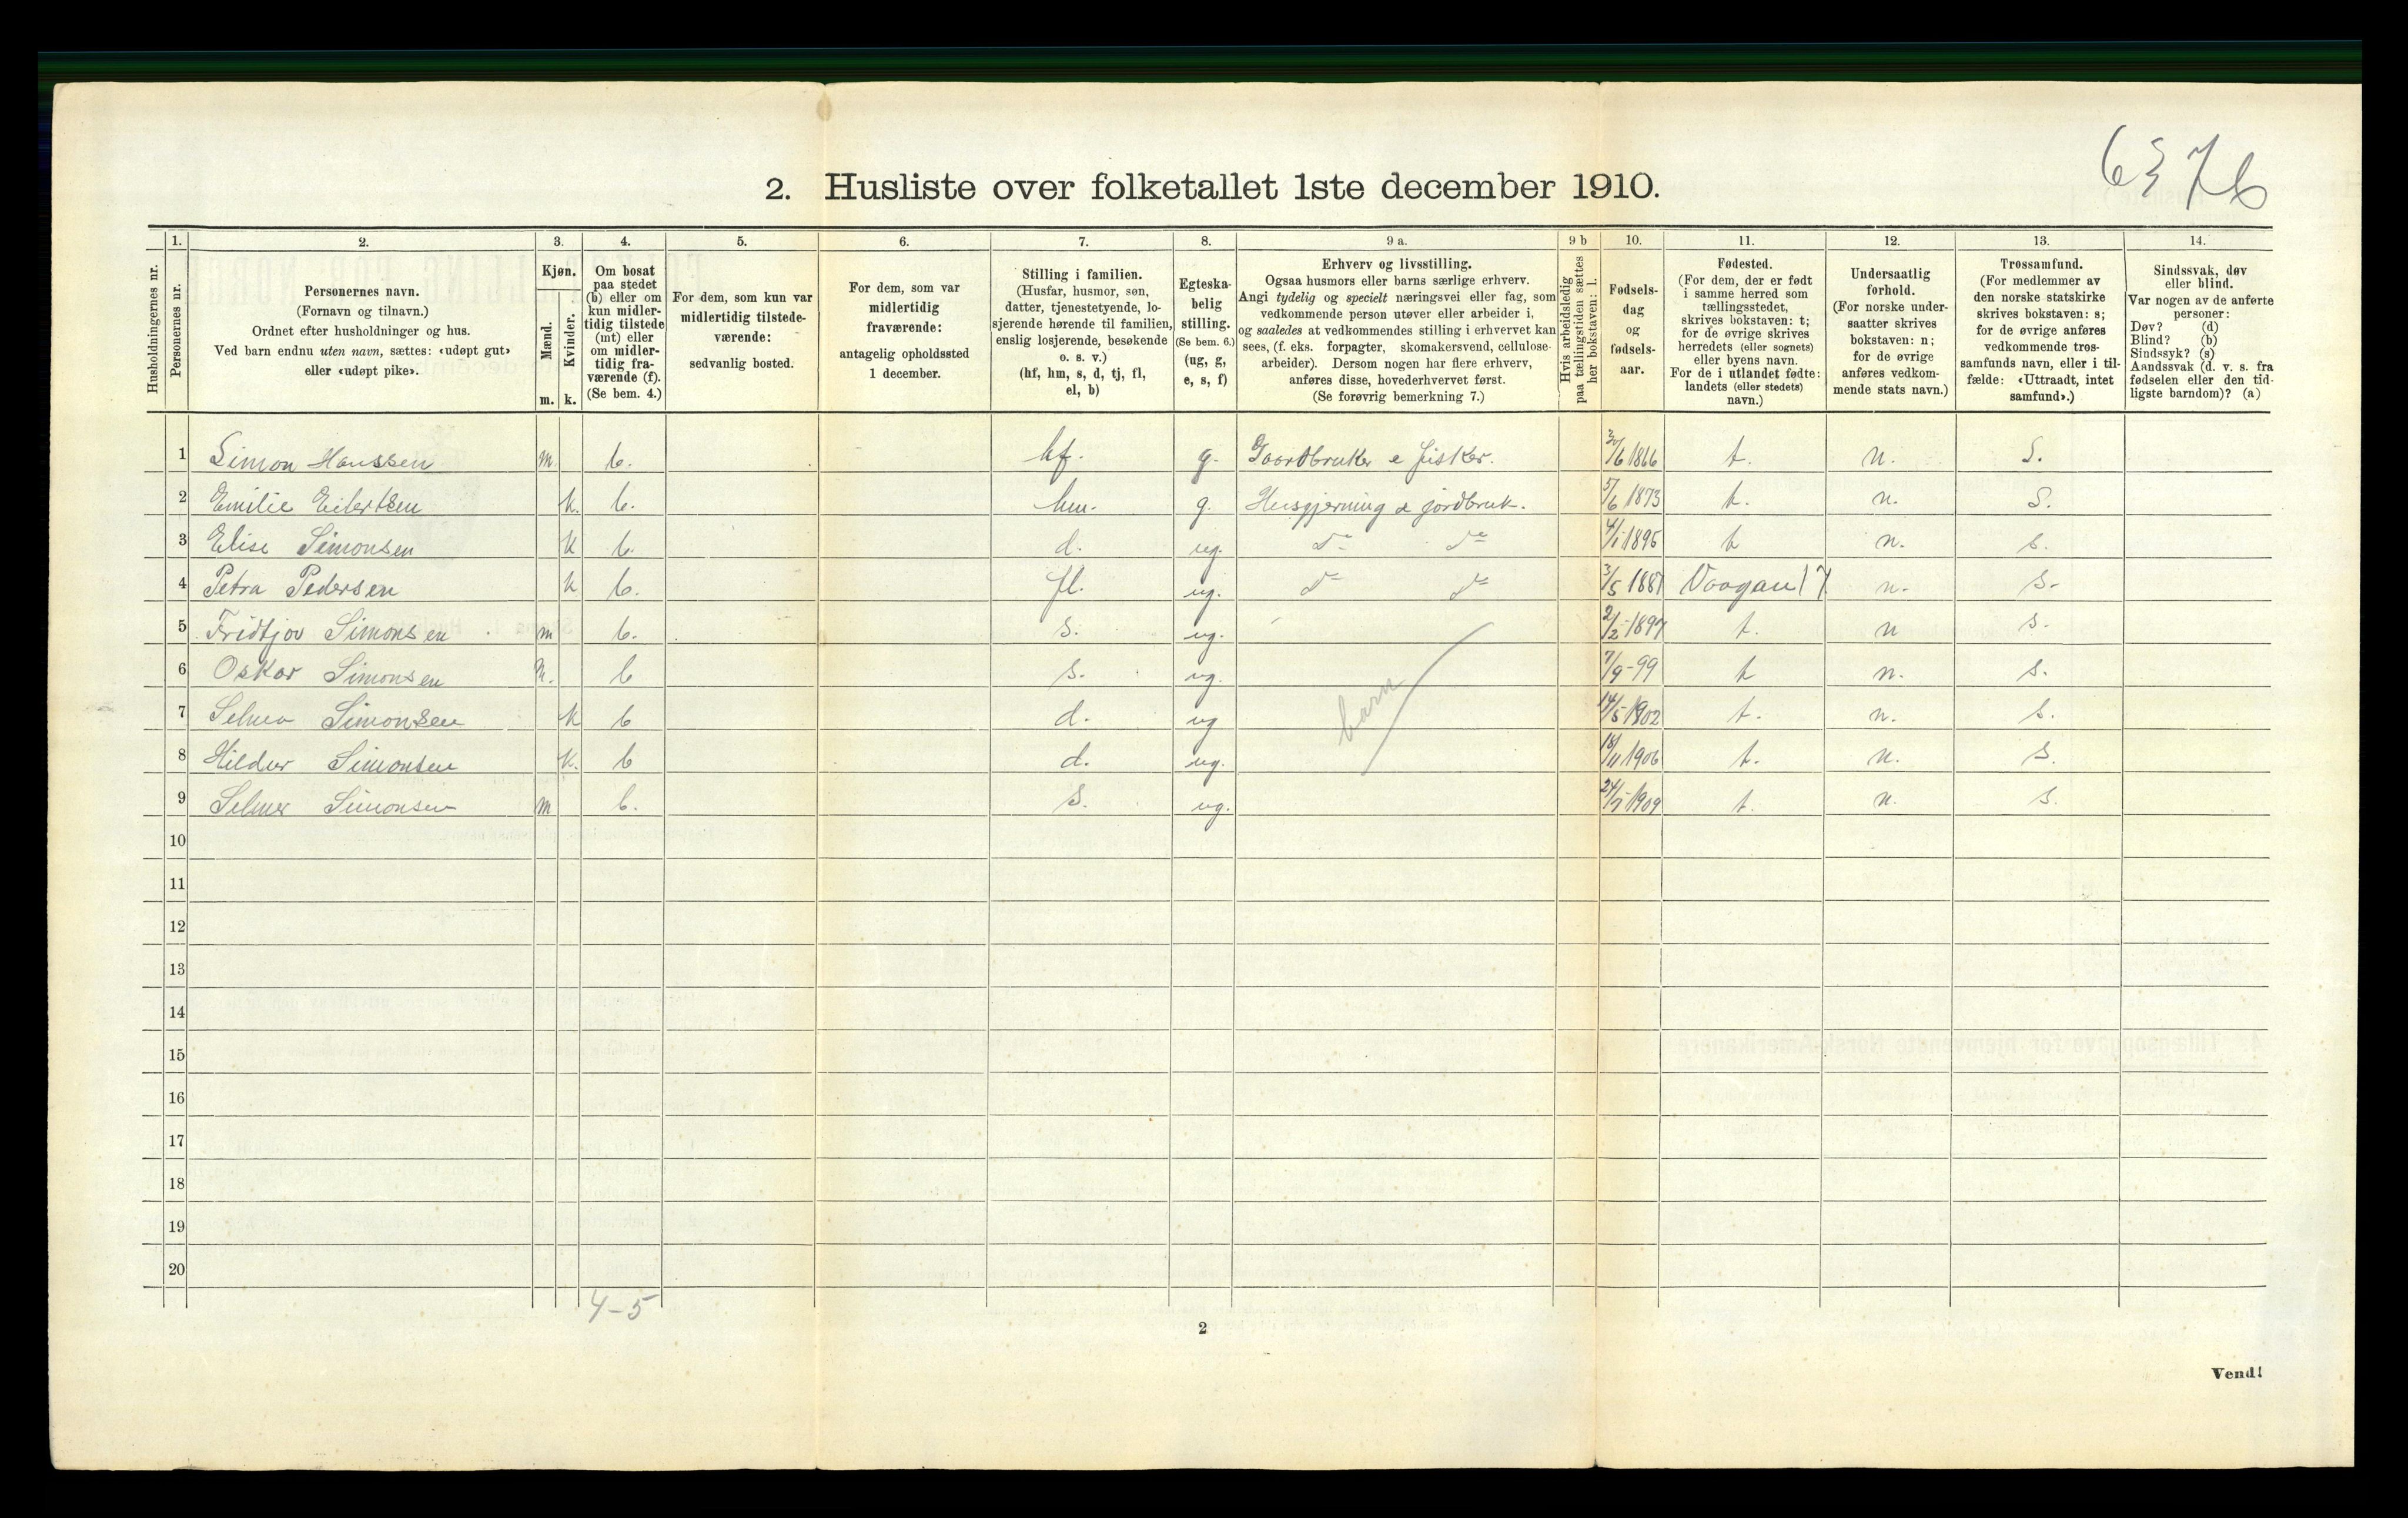 6376
2. Husliste over folketallet 1ste december 1910.
Husholdningernes nr.
1. Personernes nr.
2. Personernes navn.
(Fornavn og tilnavn.)
Ordnet efter husholdninger og hus.
Ved barn endnu uten navn, sættes: «udøpt gut»
eller «udøpt pike».
3. Kjøn.
Mænd. Kvinder.
m. k.
4. Om bosat
paa stedet
(b) eller om
kun midler-
tidig tilstede
(mt) eller
om midler-
tidig fra-
værende (f).
(Se bem. 4.)
5. For dem, som kun var
midlertidig tilstede-
værende:
sedvanlig bosted.
6. For dem, som var
midlertidig
fraværende:
antagelig opholdssted
1 december.
7. Stilling i familien.
(Husfar, husmor, søn,
datter, tjenestetyende, lo-
sjerende hørende til familien,
enslig losjerende, besøkende
o. s. v.)
(hf, hm, s, d, tj, fl,
el, b)
8. Egteska-
belig
stilling.
(Se bem. 6.)
(ug, g,
e, s, f)
9 a. Erhverv og livsstilling.
Ogsaa husmors eller barns særlige erhverv.
Angi tydelig og specielt næringsvei eller fag, som
vedkommende person utøver eller arbeider i,
og saaledes at vedkommendes stilling i erhvervet kan
sees, (f. eks. forpagter, skomakersvend, cellulose-
arbeider). Dersom nogen har flere erhverv,
anføres disse, hovederhvervet først.
(Se forøvrig bemerkning 7.)
9 b Hvis arbeidsledig
paa tællingstiden sættes
her bokstaven: l.
10. Fødsels-
dag
og
fødsels-
aar.
11. Fødested.
(For dem, der er født
i samme herred som
tællingsstedet,
skrives bokstaven: t;
for de øvrige skrives
herredets (eller sognets)
eller byens navn.
For de i utlandet fødte:
landets (eller stedets)
navn.)
12. Undersaatlig
forhold.
(For norske under-
saatter skrives
bokstaven: n;
for de øvrige
anføres vedkom-
mende stats navn.)
13. Trossamfund.
(For medlemmer av
den norske statskirke
skrives bokstaven: s;
for de øvrige anføres
vedkommende tros-
samfunds navn, eller i til-
fælde: «Uttraadt, intet
samfund».)
14. Sindssvak, døv
eller blind.
Var nogen av de anførte
personer:
Døv? (d)
Blind? (b)
Sindssyk? (s)
Aandssvak (d. v. s. fra
fødselen eller den tid-
ligste barndom)? (a)
1 Simon Hanssen m. b. hf. g. Gaardbruker e fisker. 30/6 1866 t. n. S.
2 Emilie Eilertsen k. b. hm. g. Husgjerning e jordbruk. 5/6 1873 t. n. S.
3 Elise Simonsen k b. d. ug. do do 4/1 1895 t n. s.
4 Petra Pedersen k b. fl. ug. do do 3/5 1887 Vaagan n. s.
5 Fridtjov Simonsen m b. s. ug. 2/2 1897 t. n s.
6 Oskar Simonsen m. b s. ug. 7/9-99 t n. s.
7 Selma Simonsen k b d. ug barn 14/5 1902 t. n. s.
8 Hildur Simonsen k. b d. ug. 18/11 1906 t. n. s.
9 Selmer Simonsen m b. s. ug. 1909 t. n. s.
10
11
12
13
14
15
16
17
18
19
20
4-5
2
Vend!